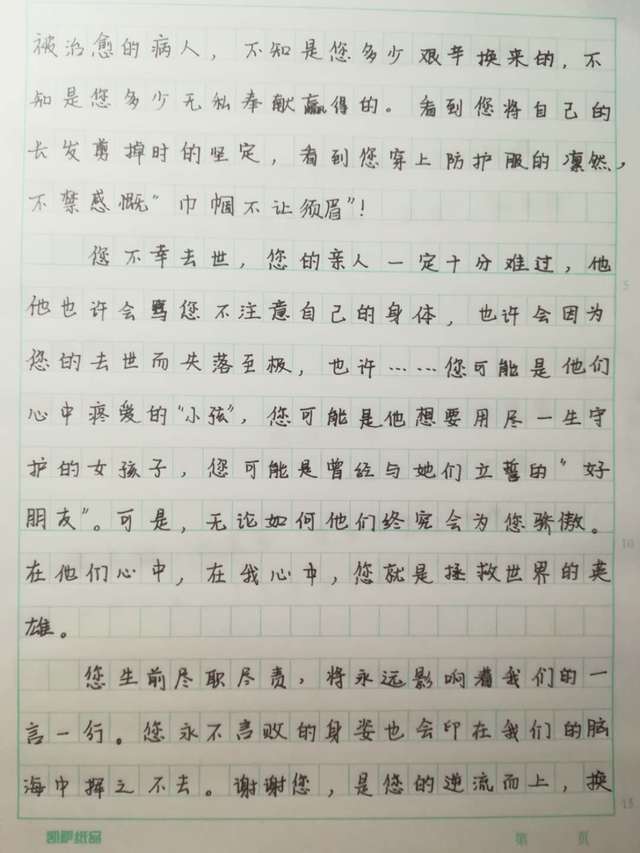 被治愈的病人，不知是您多少艰辛换来的，不
知是您多少无私奉献赢得的。看到您将自己的
长发剪掉时的坚定，看到您穿上防护服的凛然，
不禁感慨“巾帼不让须眉”！
您不幸去世，您的亲人一定十分难过，他
他也许会骂您不注意自己的身体，也许会因为
您的去世而失落至极，也许……您可能是他们
心中疼爱的“小孩”，您可能是他想要用尽一生守
护的女孩子，您可能是曾经与她们立誓的“好
朋友”。可是，无论如何他们终究会为您骄傲。
在他们心中，在我心中，您就是拯救世界的英
雄。
您生前尽职尽责，将永远影响着我们的一
言一行。您永不言败的身姿也会印在我们的脑
海中挥之不去。谢谢您，是您的逆流而上，换
5
10
15
凯萨纸品
第 页